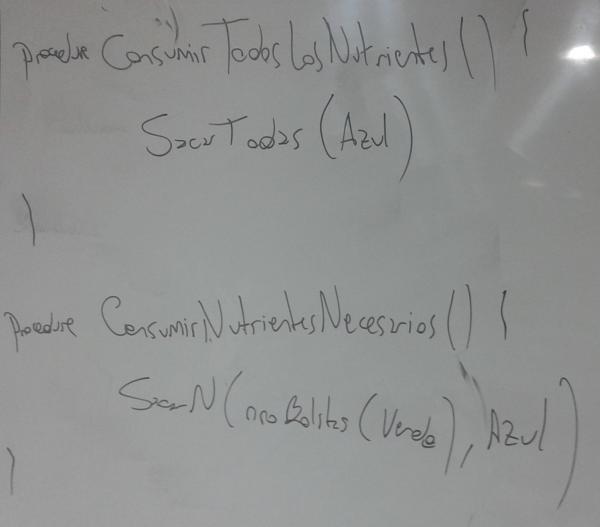 procedure ConsumirTodosLosNutrientes() {
SacarTodas (Azul)
}
Procedure ConsumirNutrientesNecesarios() {
SacarN(nroBolitas(Verde), Azul)
}